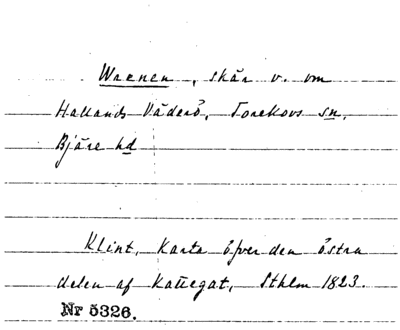 Wrenen, skär v. om
Hallands Väderö, Torekovs sn,
Bjäre hd
Klint, Karta öfver den östra
delen af Kattegat, Sthlm 1823.
Nr 5326.